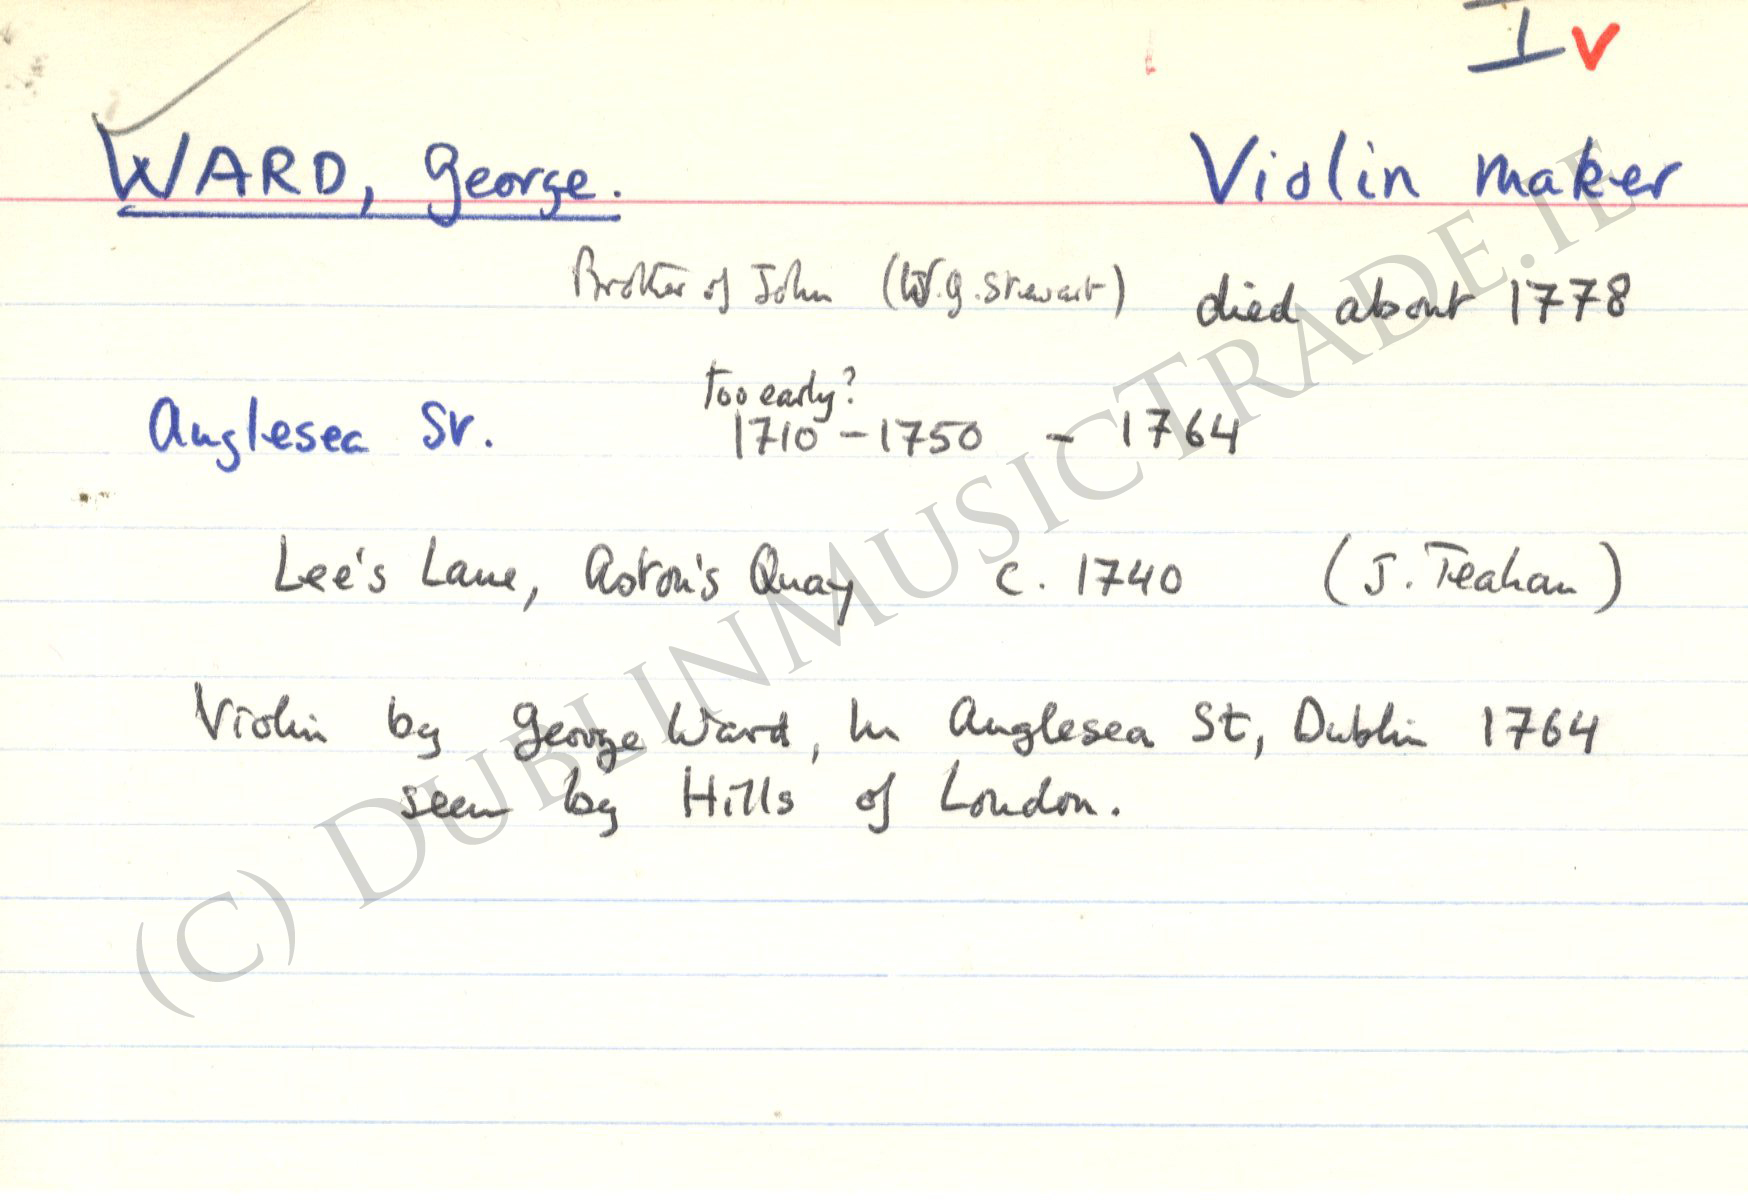 I v
WARD, George. Violin maker
Brother of John (W.G. Stewart) died about 1778
too early?
Anglesea St. 1710 - 1750 - 1764
Lee's Lane, Aston's Quay c. 1740 (J. Teahan)
Violin by George Ward, in Anglesea St, Dublin 1764
seen by Hills of London.
(C) DUBLINMUSICTRADE.IE